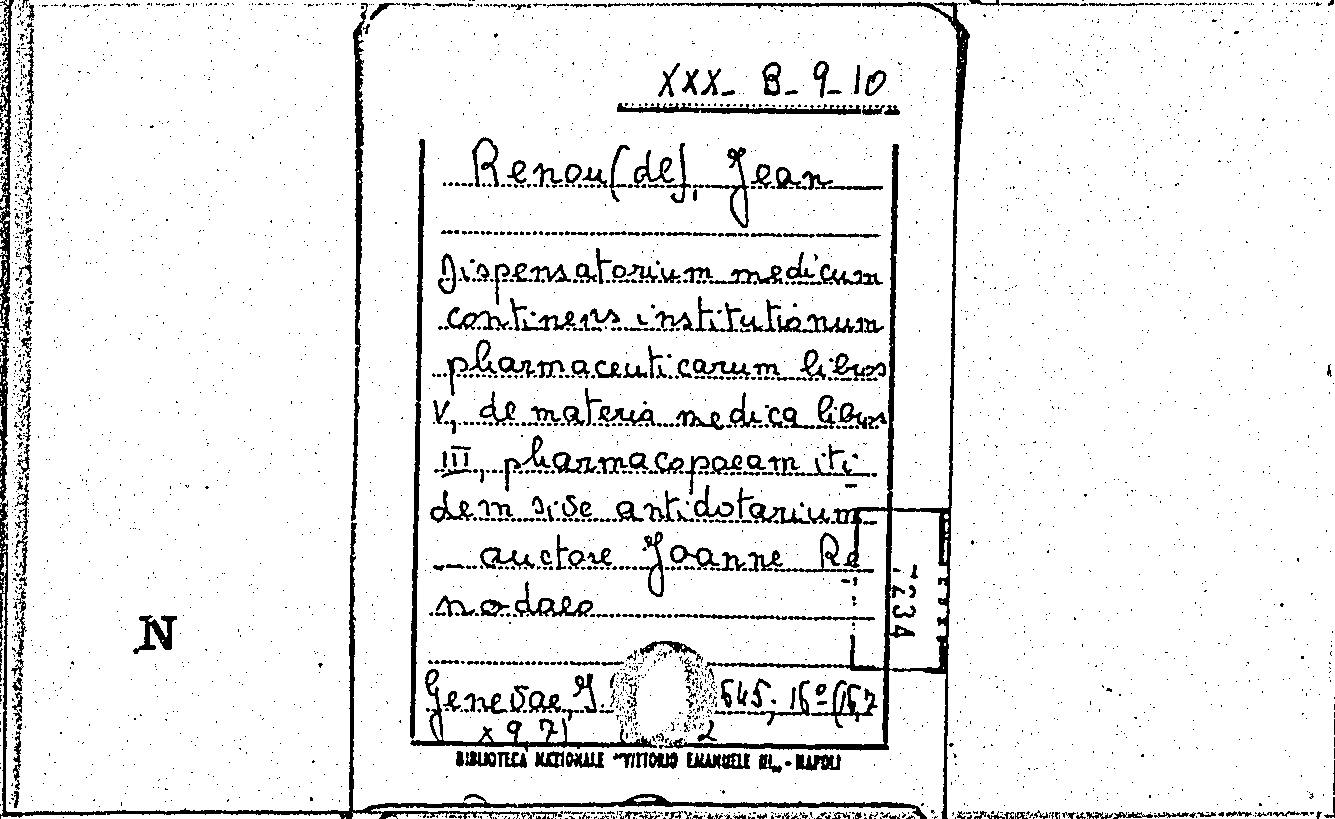 XXX- B- 9- 10
Renou (de), Jean
Dispensatorium medicum
continens institutionum
pharmaceuticarum libros
V, de materia medica libros
III, pharmacopoeam iti
dem sive antidotarium
_ auctore Joanne Re
nodaeo
N
Genevae, J. 645; 16º (16,7
x 9,7)
BIBLIOTECA NAZIONALE "VITTORIO EMANUELE III„ - NAPOLI